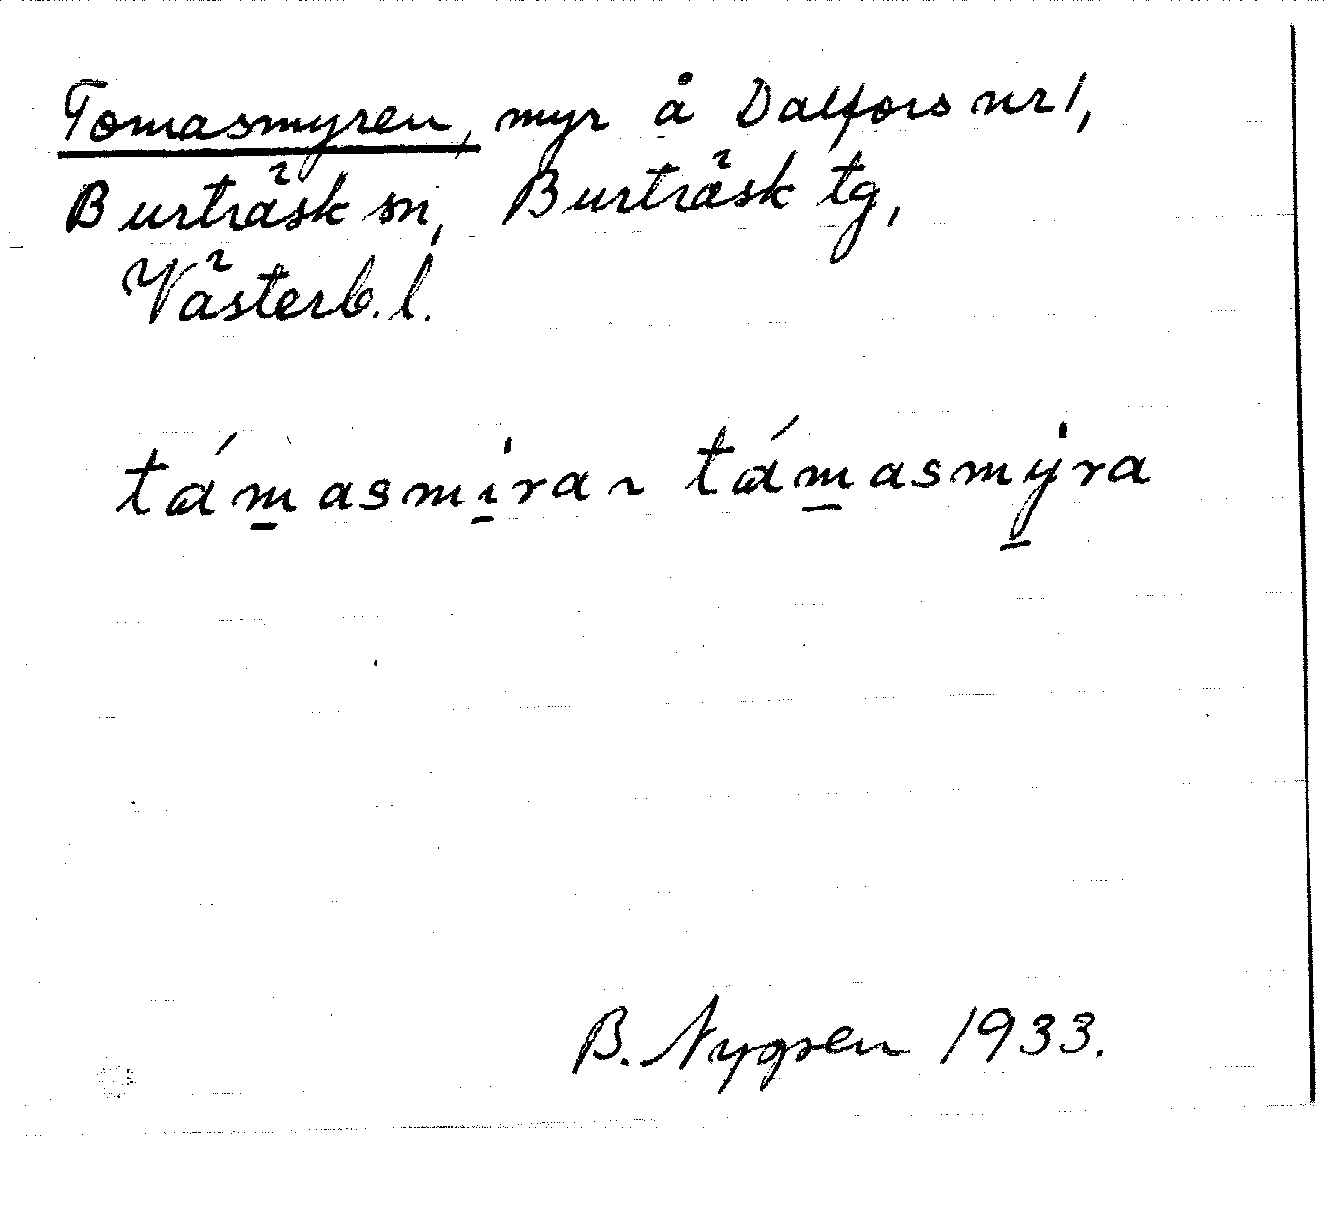 Tomasmyren, myr å Dalfors nr 1,
Burträsk sn, Burträsk tg,
Västerb. l.
tám̲asmi̲ra ~ tám̲asmy̲ra
B. Nygren 1933.